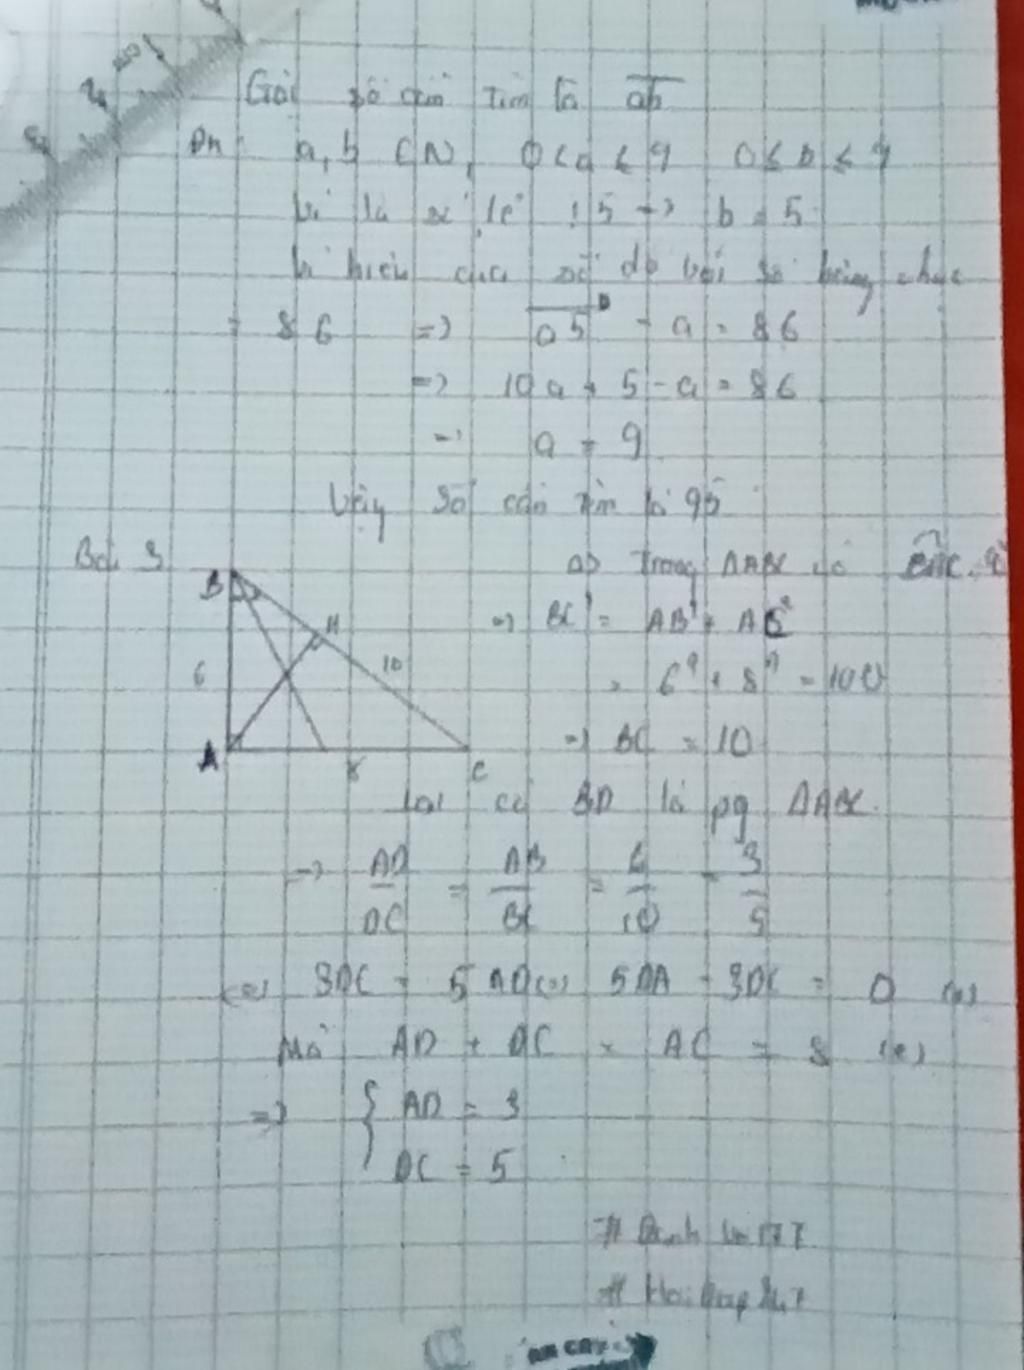 Gọi số cần tìm là ab
Đk a, b ∈ N, 0 < a ≤ 9 0 ≤ b ≤ 9
Vì là số lẻ ⋮ 5 => b = 5
Vì hiệu của số đó với số hàng chục
= 86 => a5 - a = 86
=> 10a + 5 - a = 86
=> a = 9
Vậy số cần tìm là 95
Bài 3
B
H
6
10
A
K
C
a) Trong ΔABC có
=> BC² = AB² + AC²
= 6² + 8² = 100
=> BC = 10
Lại có BD là pg ΔABC
=> AD/DC = AB/BC = 6/10 = 3/5
<=> 3DC = 5AD <=> 5DA - 3DC = 0
Mà AD + DC = AC = 8
=> { AD = 3
DC = 5